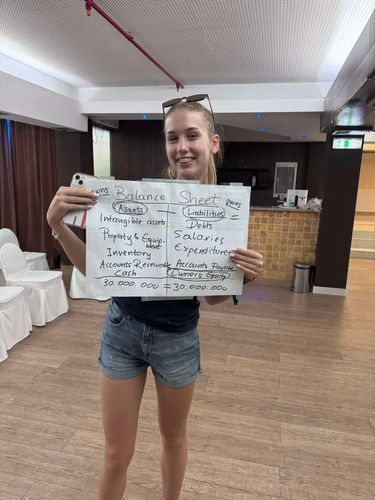 owns Balance Sheet owes
Assets Liabilities =
Intangible assets Debts
Property & Equip- Salaries
ment Expenditure
Inventory
Accounts Receivable Accounts Payable
Cash Owners Equity
30.000.000 = 30.000.000